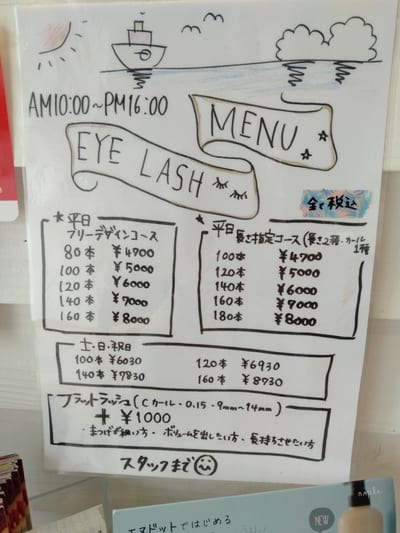 AM10:00~PM16:00
MENU
EYE LASH
全て税込
★平日
フリーデザインコース
80本 ¥4700
100本 ¥5000
120本 ¥6000
140本 ¥7000
160本 ¥8000
★平日
長さ指定コース(長さ2種・カール1種
100本 ¥4700
120本 ¥5000
140本 ¥6000
160本 ¥7000
180本 ¥8000
土・日・祝日
100本 ¥6030 120本 ¥6930
140本 ¥7830 160本 ¥8730
フラットラッシュ(Cカール・0.15・9mm~14mm)
+ ¥1000
・まつげが細い方・ボリュームを出したい方・長持ちさせたい方
スタッフまで
エヌドットではじめる
NEW